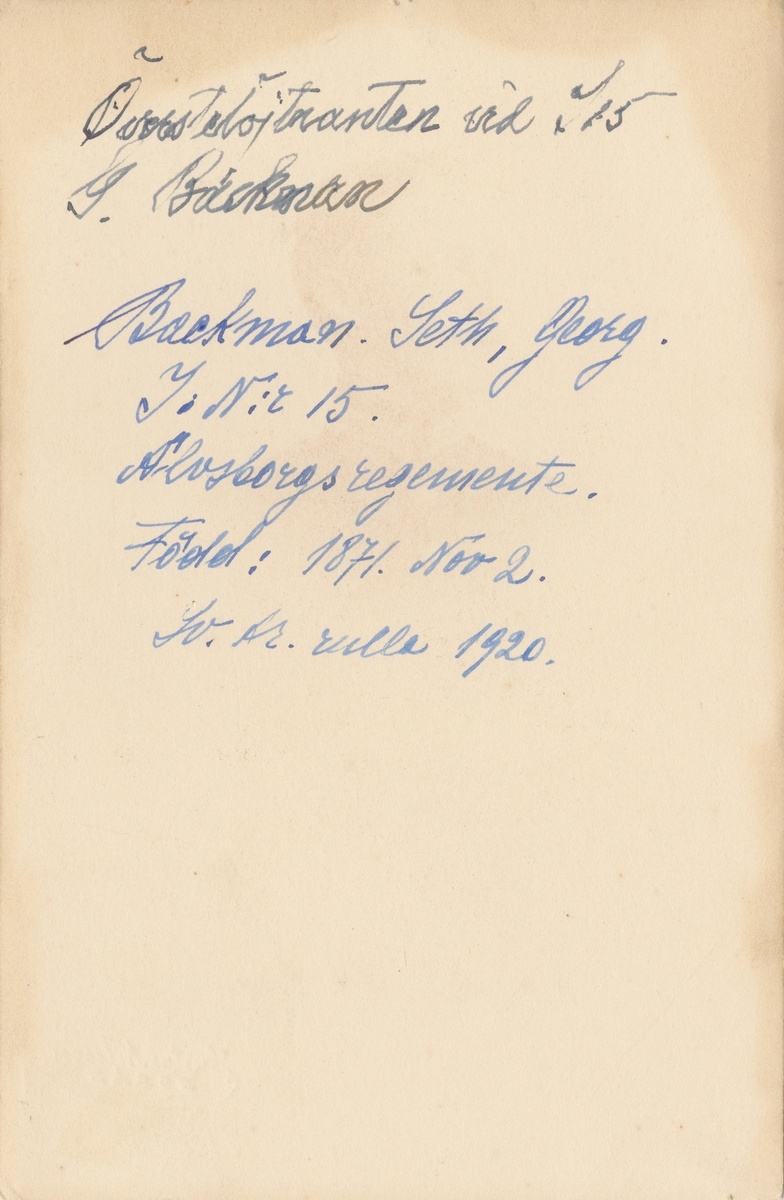 Överstelöjtnanten vid I 15
G. Bäckman
Backman. Seth, Georg.
I: N:r 15.
Älvsborgs regemente.
Född: 1871. Nov 2.
Sv. Ar. rulla 1920.